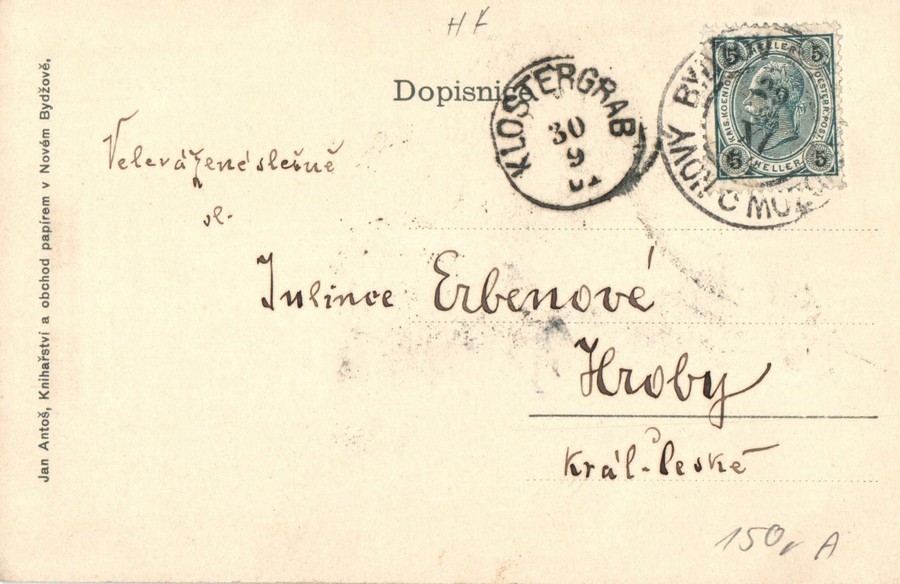 H K
Dopisnice
KLOSTERGRAB
30
9
01
NOVÝ BYD
29
5 HELLER 5
KAIS. KOENIGL. OESTERR. POST
5 HELLER 5
Velevážené slečně
sl.
Julince Erbenové
Hroby
Král. České
150,- A
Jan Antoš, Knihařství a obchod papírem v Novém Bydžově.